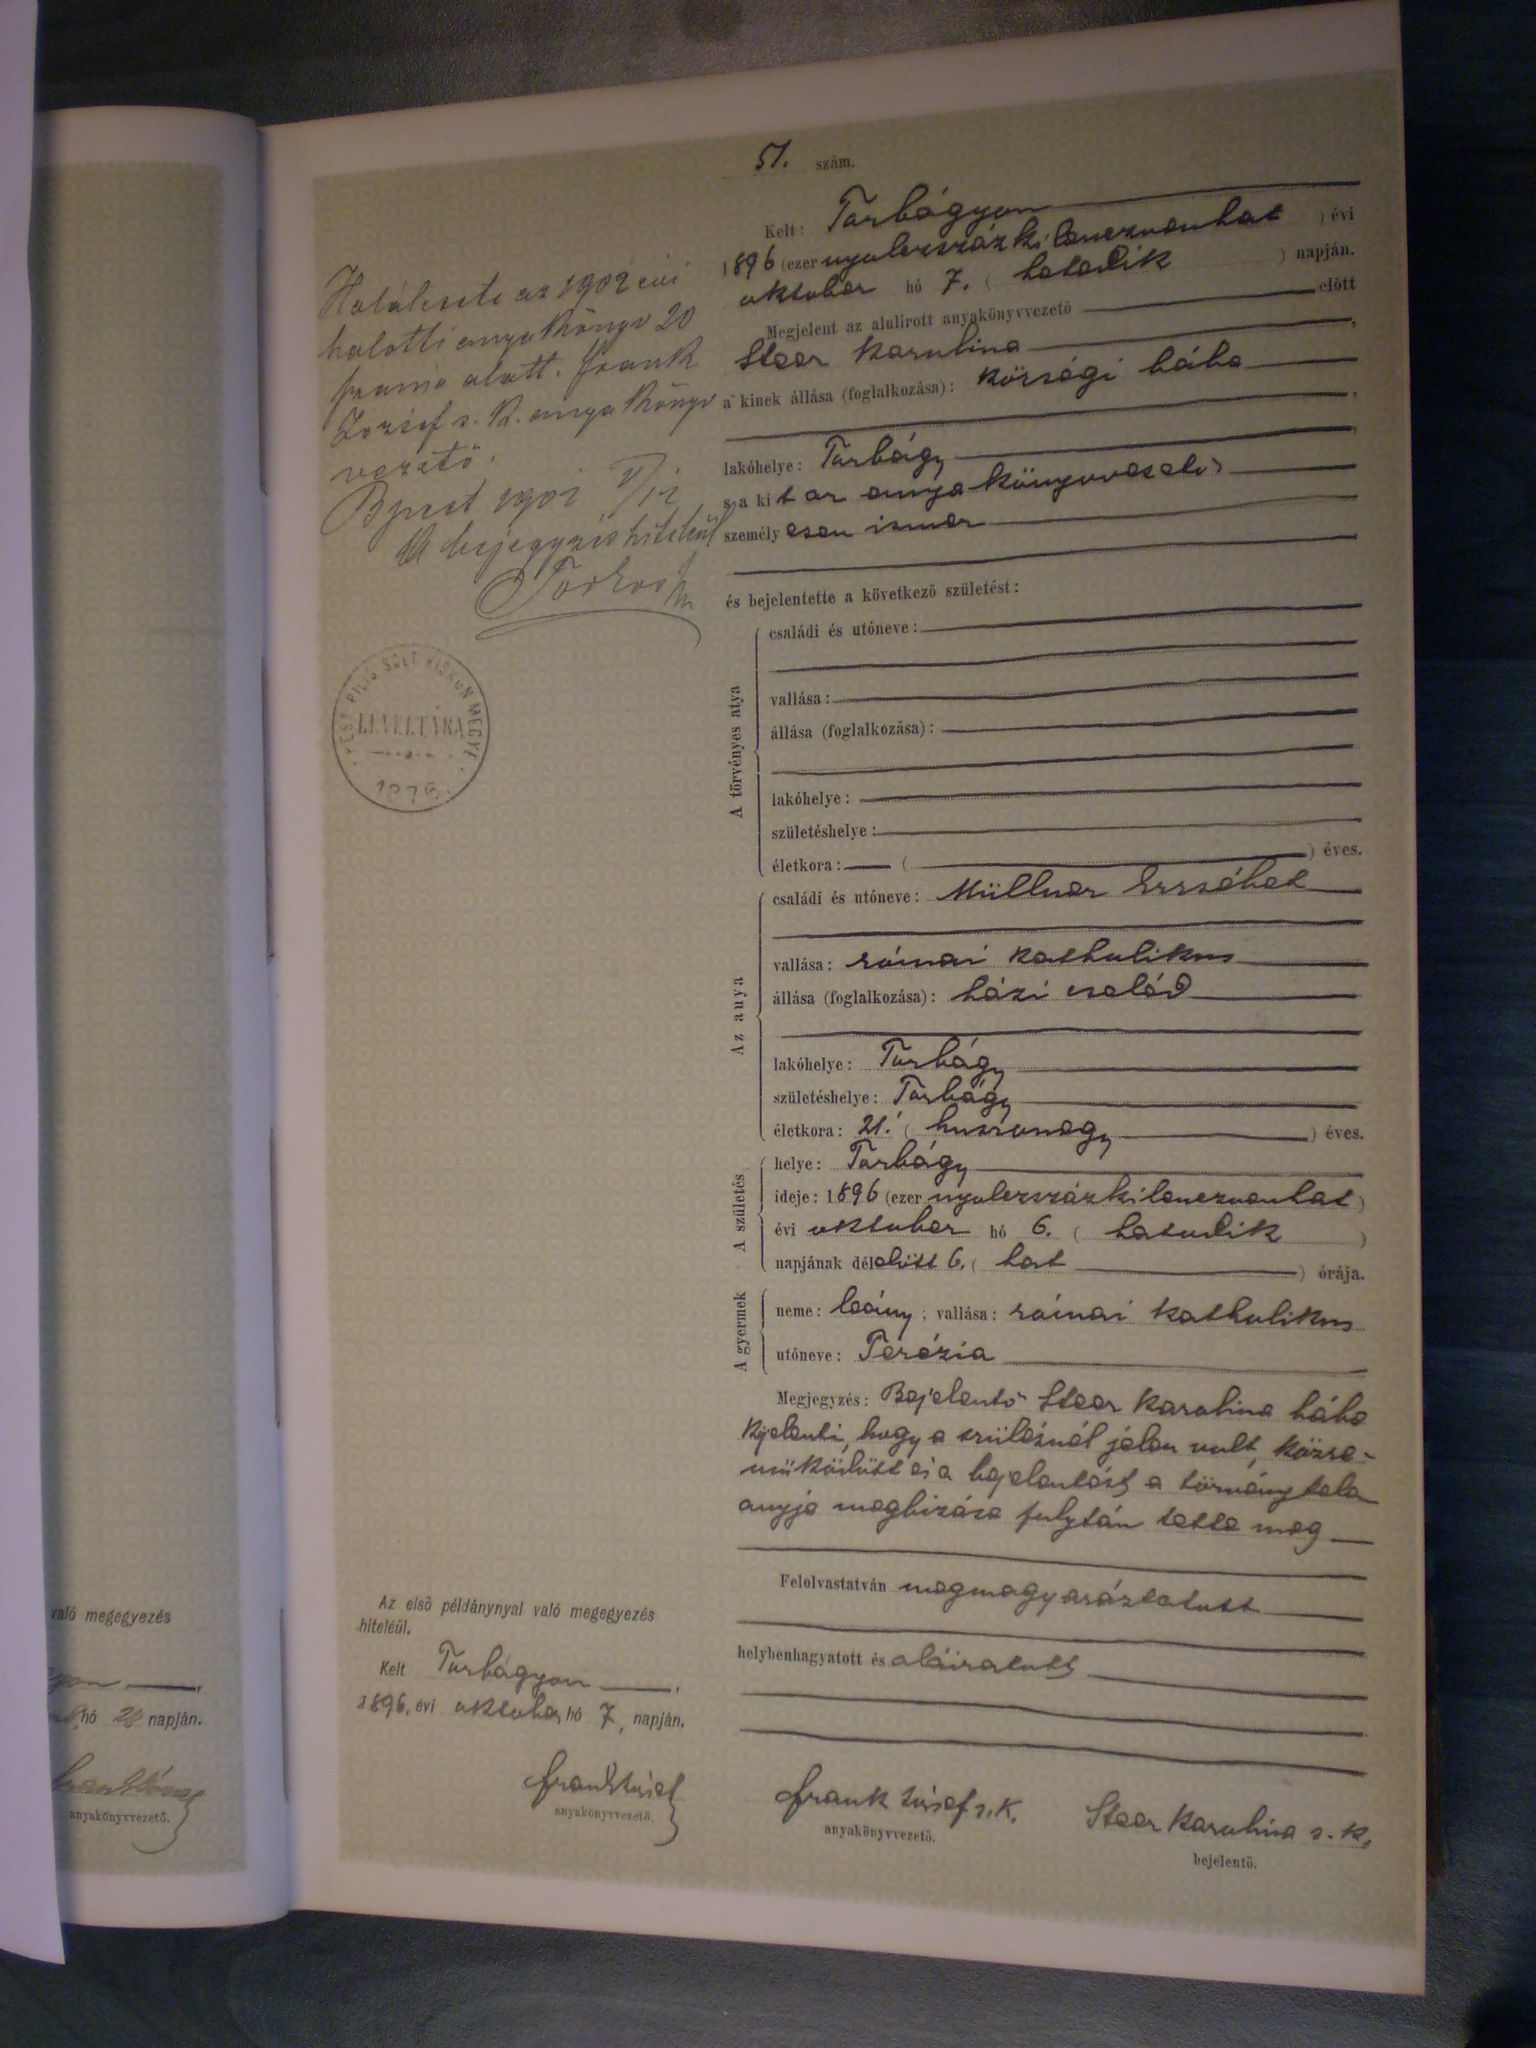 51. szám.
Kelt: Torbágyon
1896 (ezer nyolczszáz kilenczvenhat ) évi
oktober hó 7. ( hatodik ) napján.
Megjelent az alulirott anyakönyvvezető előtt
Steer Karolina ,
a kinek állása (foglalkozása): községi bába
,
lakóhelye: Torbágy ,
s a kit az anyakönyvvezető
személyesen ismer
és bejelentette a következő születést:
A törvényes atya
családi és utóneve:
vallása:
állása (foglalkozása):
lakóhelye:
születéshelye:
életkora: ( ) éves.
Az anya
családi és utóneve: Müllner Erzsébet
vallása: római katholikus
állása (foglalkozása): házi cseléd
lakóhelye: Torbágy
születéshelye: Torbágy
életkora: 21. ( huszonegy ) éves.
A születés
helye: Torbágy
ideje: 1896 (ezer nyolczszáz kilenczvenhat )
évi oktober hó 6. ( hatodik )
napjának délelőtt 6. ( hat ) órája.
A gyermek
neme: leány ; vallása: római katholikus
utóneve: Terézia
Megjegyzés: Bejelentő Steer Karolina bába
kijelenti, hogy a szülésnél jelen volt, közre-
működött és a bejelentést a törvénytelen
anyja megbizása folytán tette meg
Felolvastatván megmagyaráztatott
helybenhagyatott és aláiratott
Frank József s. k.
anyakönyvvezető.
Steer Karolina s. k.
bejelentő.
Halálesete az 1902 évi
halotti anyakönyv 20
száma alatt. Frank
József s. k. anyakönyv
vezető.
Bpest 1902
A bejegyzés hiteléül
PEST PILIS SOLT KISKUN MEGYE
LEVELTÁRA
1876.
Az első példánynyal való megegyezés
hiteléül.
Kelt Torbágyon ,
1896. évi oktober hó 7. napján.
Frank József
anyakönyvvezető.
való megegyezés
hó napján.
anyakönyvvezető.